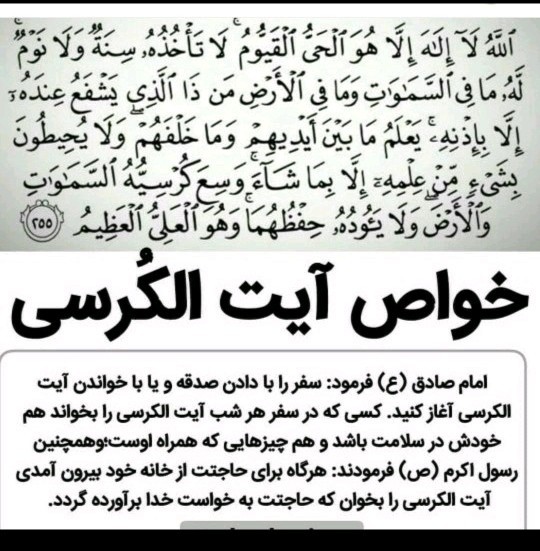 ٱللَّهُ لَآ إِلَـٰهَ إِلَّا هُوَ ٱلْحَىُّ ٱلْقَيُّومُ ۚ لَا تَأْخُذُهُۥ سِنَةٌ وَلَا نَوْمٌ ۚ
لَّهُۥ مَا فِى ٱلسَّمَـٰوَٰتِ وَمَا فِى ٱلْأَرْضِ ۗ مَن ذَا ٱلَّذِى يَشْفَعُ عِندَهُۥٓ
إِلَّا بِإِذْنِهِۦ ۚ يَعْلَمُ مَا بَيْنَ أَيْدِيهِمْ وَمَا خَلْفَهُمْ ۖ وَلَا يُحِيطُونَ
بِشَىْءٍ مِّنْ عِلْمِهِۦٓ إِلَّا بِمَا شَآءَ ۚ وَسِعَ كُرْسِيُّهُ ٱلسَّمَـٰوَٰتِ
وَٱلْأَرْضَ ۖ وَلَا يَـُٔودُهُۥ حِفْظُهُمَا ۚ وَهُوَ ٱلْعَلِىُّ ٱلْعَظِيمُ ٢٥٥
خواص آیت الکُرسی
امام صادق (ع) فرمود: سفر را با دادن صدقه و یا با خواندن آیت
الکرسی آغاز کنید. کسی که در سفر هر شب آیت الکرسی را بخواند هم
خودش در سلامت باشد و هم چیزهایی که همراه اوست؛وهمچنین
رسول اکرم (ص) فرمودند: هرگاه برای حاجتت از خانه خود بیرون آمدی
آیت الکرسی را بخوان که حاجتت به خواست خدا برآورده گردد.